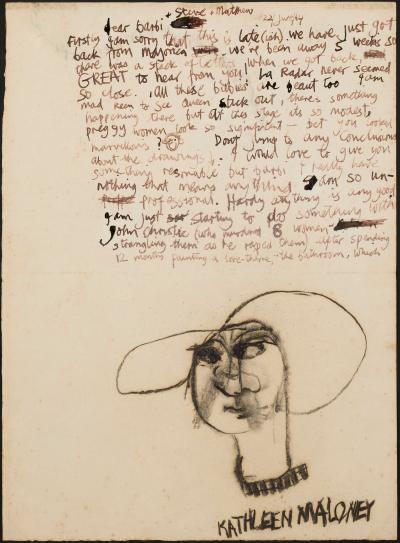 dear barbi + Steve + Matthew
22 January
Firstly I am sorry that this is late(ish). We have just got
back from Majorca we've been away 5 weeks so
there was a stack of letters when we got back.
GREAT to hear from you! La Radar never seemed
so close. All these babies are beaut too I am
mad keen to see Queen stick out, there's something
happening there but at this stage its so modest,
preggy women look so significant — bet you looked
marvellous? Don't jump to any conclusions
about the drawings I would love to give you
something resmiable but barbi I really have
nothing that means anything I am so un-
professional. Hardly anything is any good
I am just starting to do something with
John Christie (who murdered 8 women
strangling them as he raped them) after spending
12 months painting a love-theme, the bathroom, which
KATHLEEN MALONEY